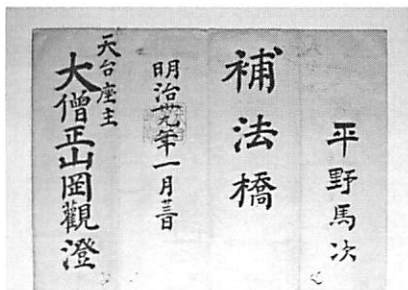 平野馬次
補法橋
明治卅九年一月廿三日
天台座主
大僧正山岡觀澄